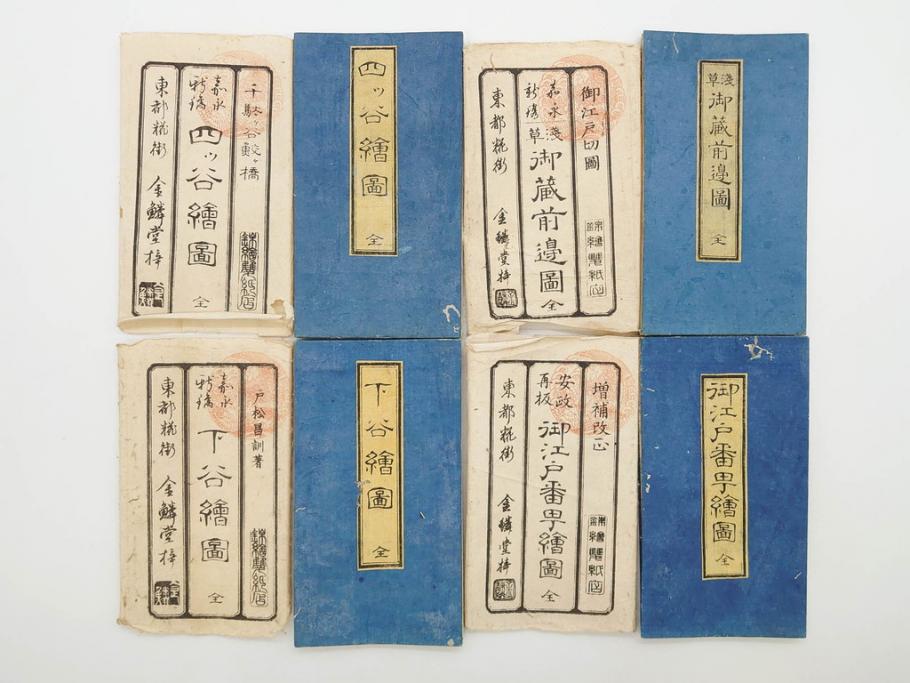 千駄ヶ谷鮫ヶ橋
嘉永
新鐫
四ッ谷繪圖
全
東都糀街
金鱗堂梓
四ッ谷繪圖
全
御江戸切圖
嘉永
新鐫
淺草
御藏前邉圖
全
東都糀街
金鱗堂梓
淺草
御藏前邉圖
全
戸松昌訓著
嘉永
新鐫
下谷繪圖
全
東都糀街
金鱗堂梓
下谷繪圖
全
増補改正
安政
再板
御江戸番町繪圖
全
東都糀街
金鱗堂梓
御江戸番町繪圖
全